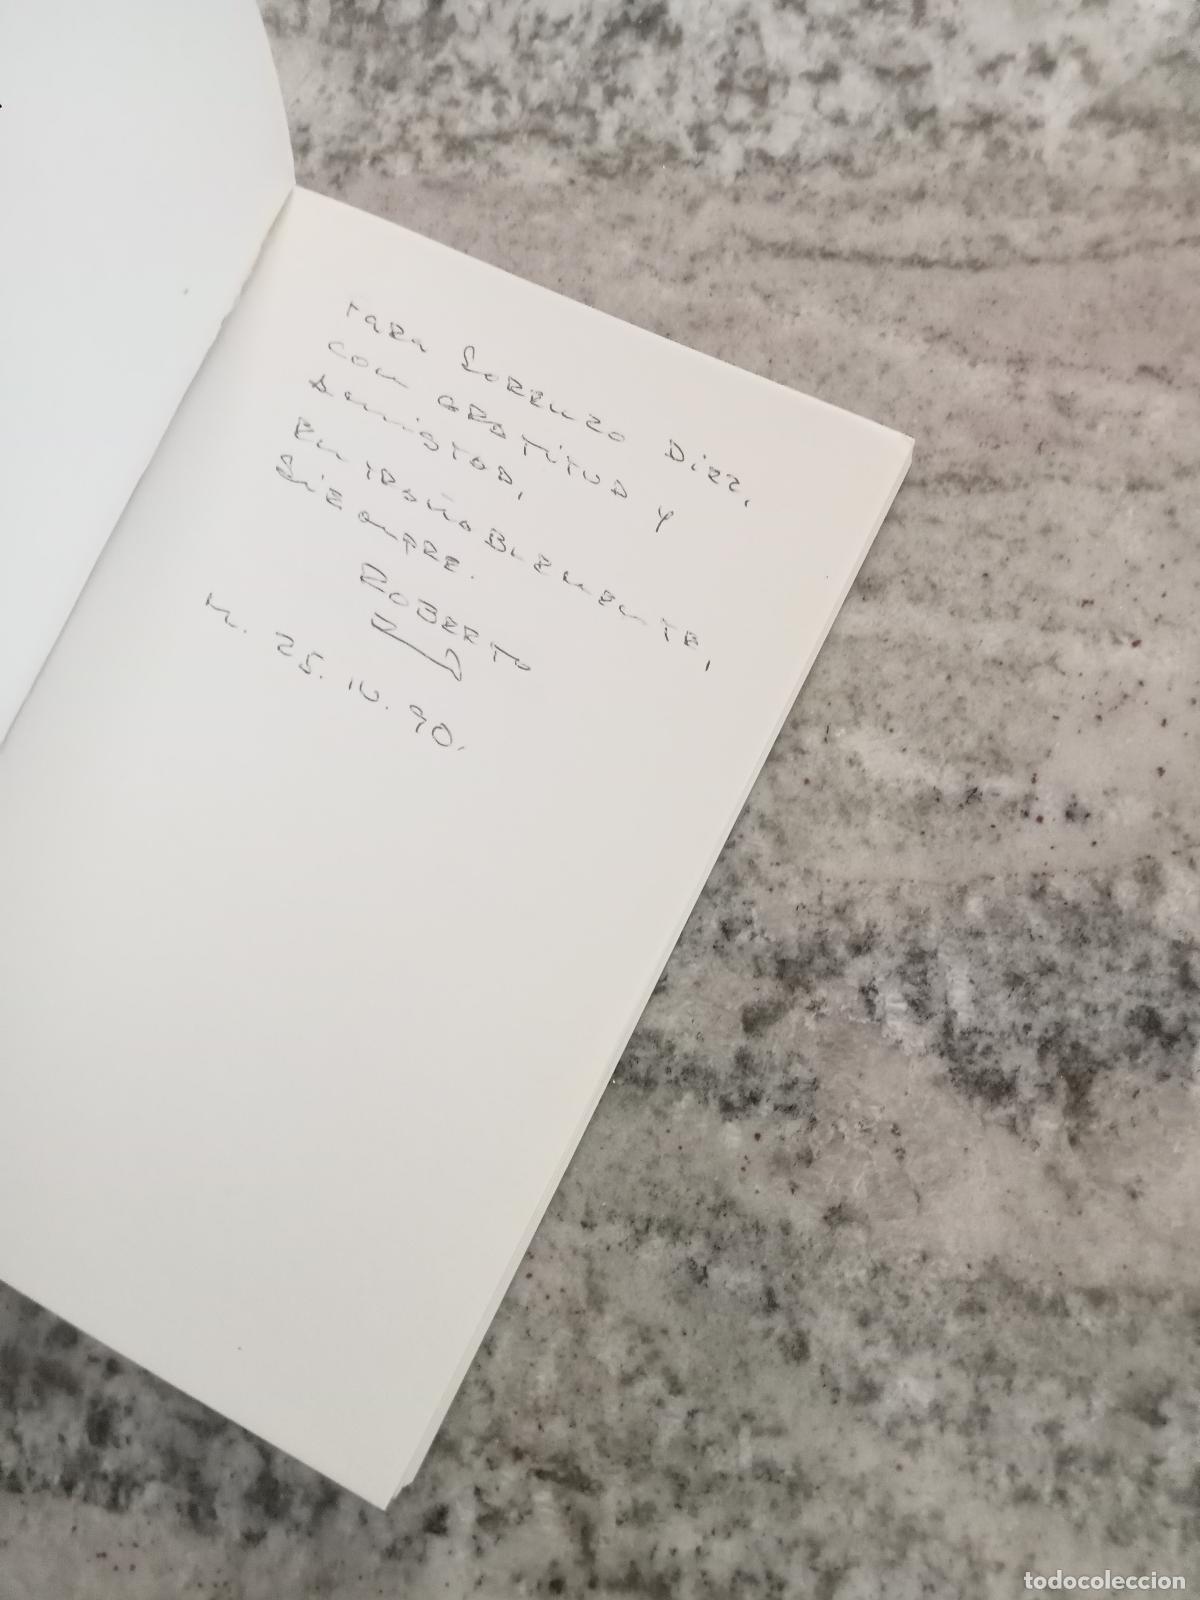 Para Lorenzo Díaz,
con gratitud y
amistad,
entrañablemente,
siempre.
Roberto
M. 25. IV. 90.
todocoleccion